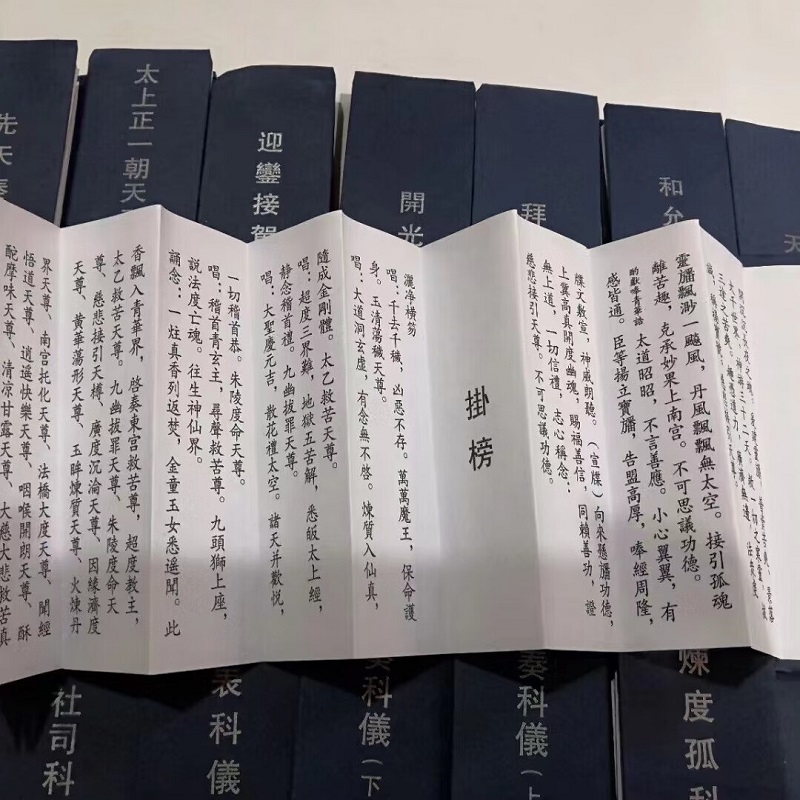 天
和允
拜
開光
迎鑾接駕
太上正一朝天
先天奏
靈旛飄渺一飈風，丹風飄飄無太空。接引孤魂
離苦趣，克承妙果上南宮。不可思議功德。
酌獻唪青華誥 太道昭昭，不言善應。小心翼翼，有
感皆通。臣等揚立寶旛，告盟高厚，唪經周隆，
牒文敷宣，神威朗聽。（宣牒）向來懸旛功德，
上冀高真開度幽魂，賜福善信，同賴善功，證
無上道，一切信禮，志心稱念：
慈悲接引天尊。不可思議功德。
掛榜
灑淨橫笏
唱：千去千穢，凶惡不存。萬萬魔王，保命護
身。玉清蕩穢天尊。
唱：大道洞玄虛，有念無不啓。煉質入仙真，
隨成金剛體。太乙救苦天尊。
唱：超度三界難，地獄五苦解，悉皈太上經，
靜念稽首禮。九幽拔罪天尊。
唱：大聖慶元吉，散花禮太空。諸天并歡悅，
一切稽首恭。朱陵度命天尊。
唱：稽首青玄主，尋聲救苦尊。九頭獅上座，
說法度亡魂。往生神仙界。
誦念：一炷真香列返焚，金童玉女悉遙聞。此
香飄入青華界，啓奏東宮救苦尊，超度教主，
太乙救苦天尊。九幽拔罪天尊、朱陵度命天
尊、慈悲接引天樽、廣度沉淪天尊、因緣濟度
天尊、黃華蕩形天尊、玉眸煉質天尊、火煉丹
界天尊、南宮托化天尊、法橋大度天尊、聞經
悟道天尊、逍遥快樂天尊、咽喉開朗天尊、酥
酡摩味天尊、清凉甘露天尊、大慈大悲救苦真
煉度孤科
奏科儀（上
奏科儀（下
表科儀
社司科